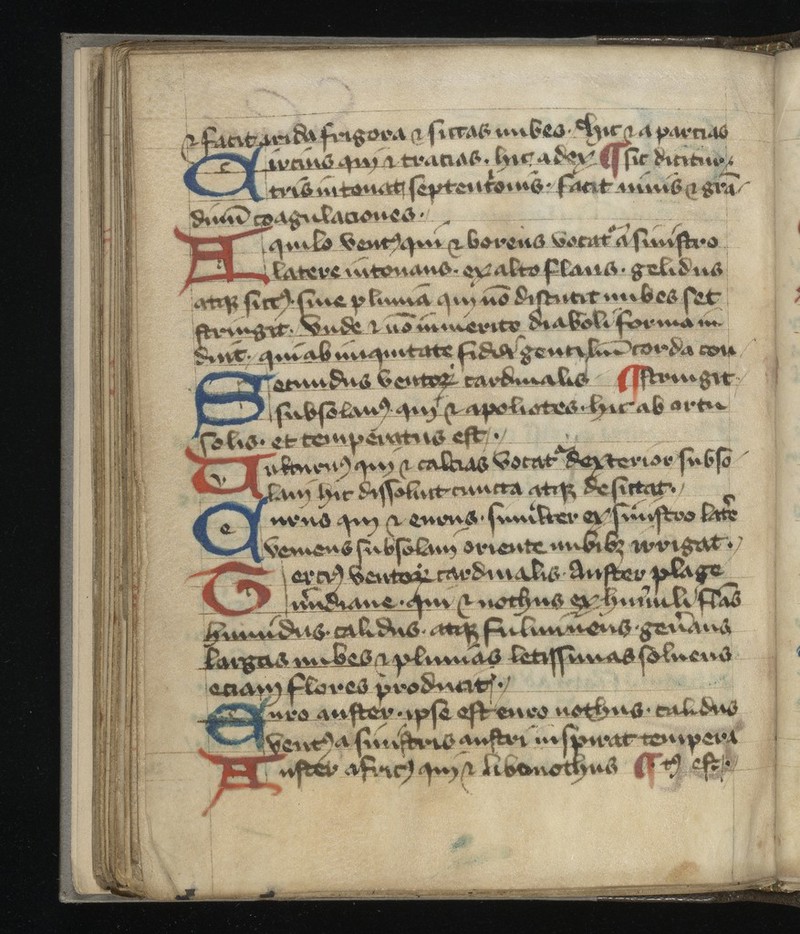 ⁊ facit arida frigora ⁊ siccas nubes. hic ⁊ aparcias
Circius qui ⁊ tracias. hic a dex ¶ sic dicitur.
tris intonat septentͥonis. facit niuis ⁊ grā
dinū coagulaciones.
Aquilo ventꝰ qui ⁊ boreus vocatᷣ a sinistro
latere intonans. ex alto flans. gelidus
atqꝫ siccꝰ. sine pluuia qui nō discutit nubes set
stringit. Vnde ⁊ nō inmerito diaboli formam in
duit. qui ab iniquitate gentiliū corda con
Secundus ventoꝝ cardinalis ¶ stringit.
subsolanꝰ qui ⁊ apoliotes. hic ab ortu
solis. et temperatus est.
Vulturnꝰ qui ⁊ calcias vocatᷣ dexterior subso
lani hic dissoluit cuncta atqꝫ desiccat.
Eurus qui ⁊ eurus. similiter ex sinistro latēe
veniens subsolani oriente nubibꝫ irrigat.
Terciꝰ ventoꝝ cardinalis. Auster plage
meridiane. qui ⁊ nothus ex humili flans
humidus. calidus. atqꝫ fulmineus. geñans
largas nubes ⁊ pluuias letissimas soluens
eciam flores producit.
Euro auster. ipse est euro nothus. calidus
ventꝰ a sinistris austri inspirat tempera
Auster africꝰ qui ⁊ libonothus ¶ tꝰ est.